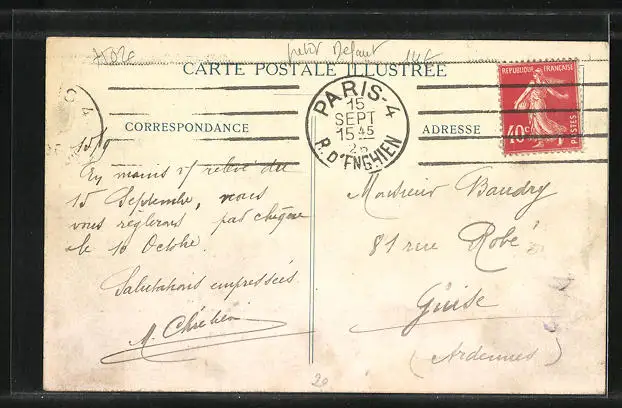 petit Défaut 14€
CARTE POSTALE ILLUSTRÉE
RÉPUBLIQUE FRANÇAISE
40c
POSTES
PARIS-4
15
SEPT
15 45
R. D'ENGHIEN
CORRESPONDANCE
ADRESSE
15/9
En mains v/ relevé du
15 Septembre, nous
vous réglerons par chèque
le 10 Octobre.
Salutations empressées
M. Chrétien
Monsieur Baudry
81 rue
Guise
(Ardennes)
20